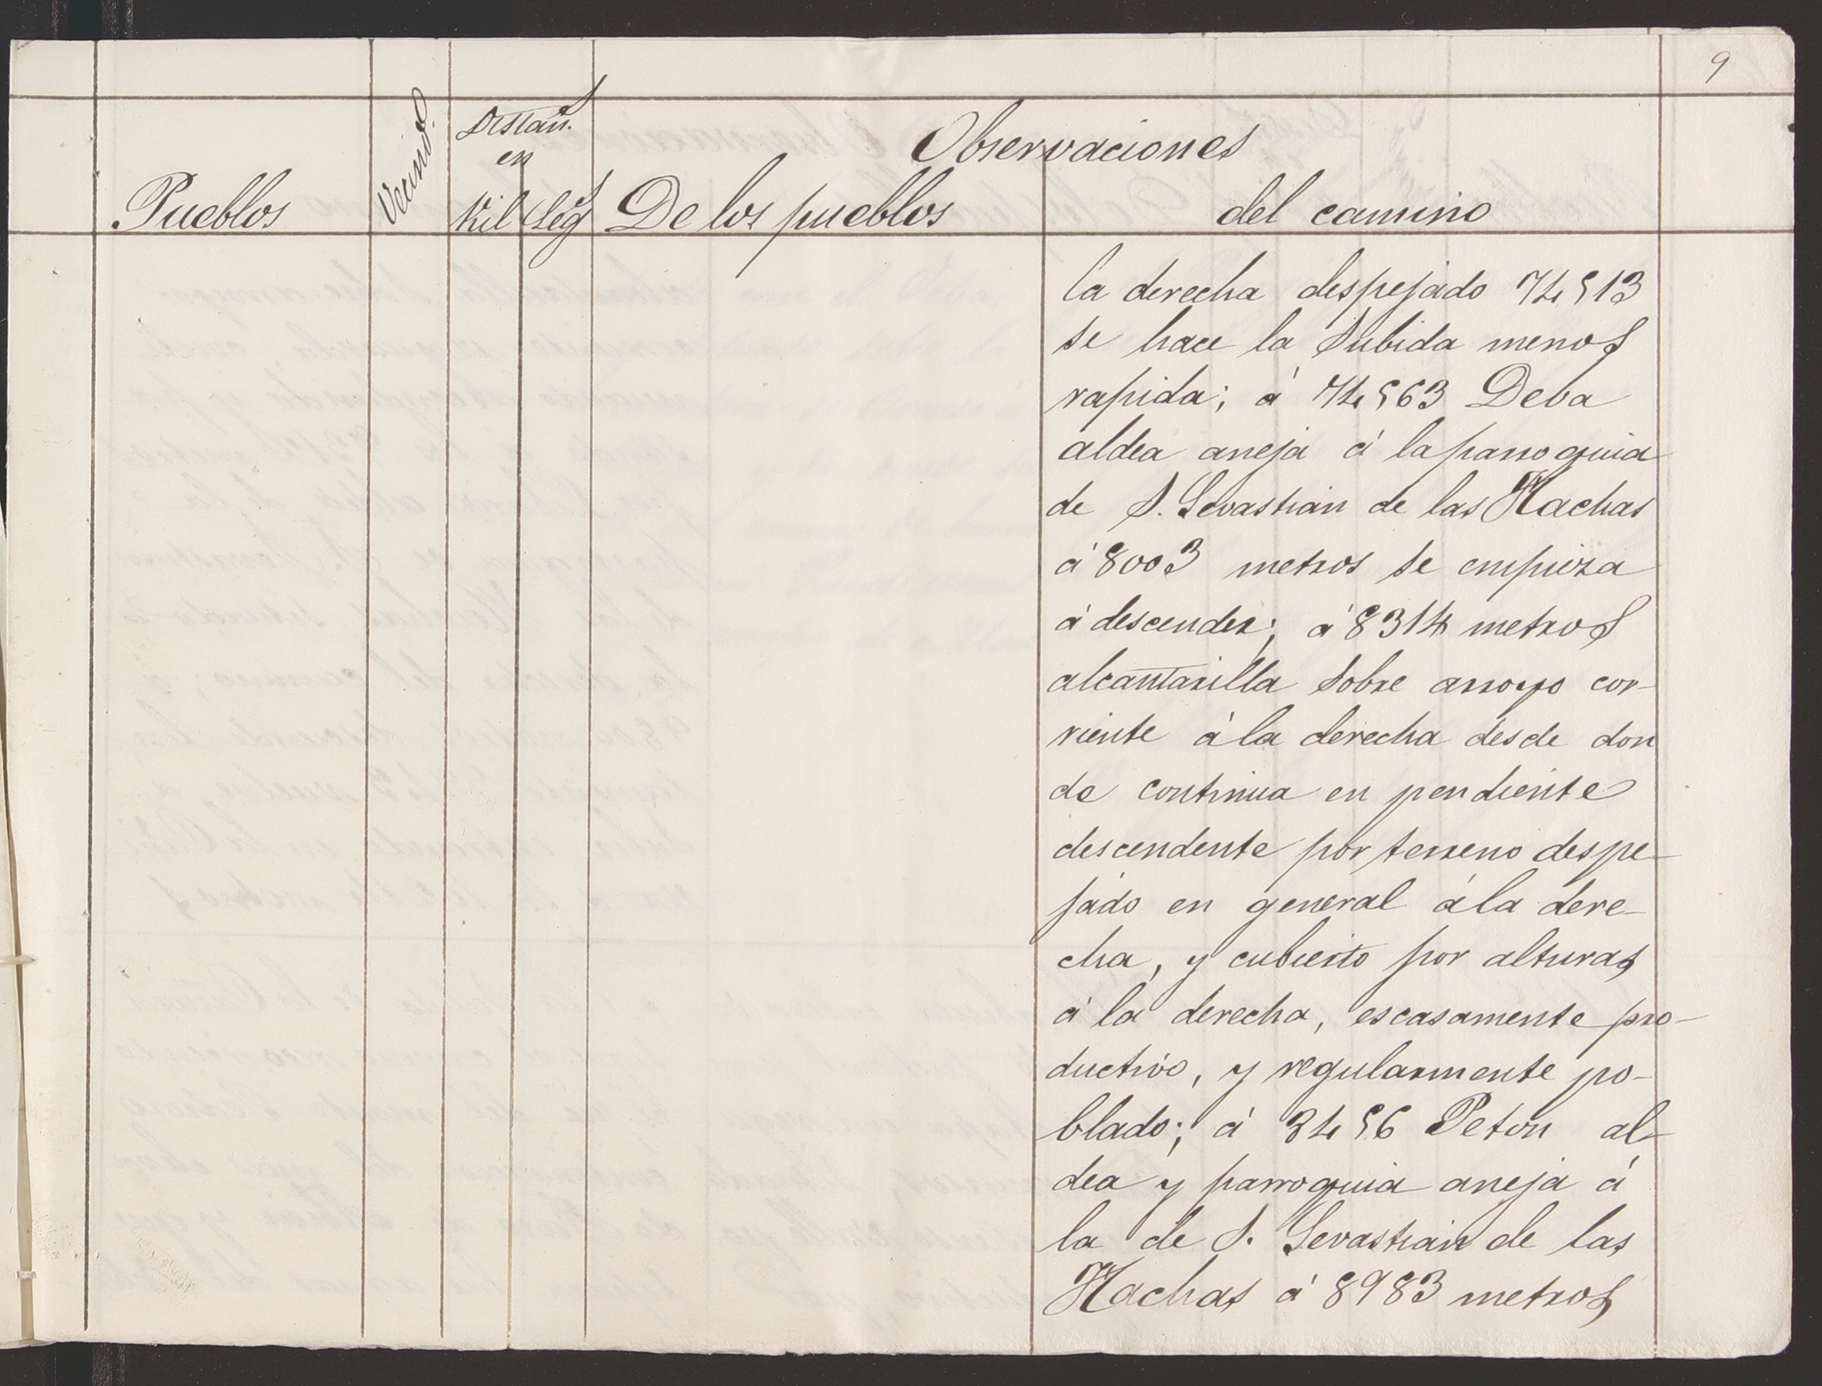 9
Observaciones
Distan.
en
Pueblos
Vecind.
Kil
Leg
De los pueblos
del camino
la derecha despejado 74513
se hace la subida menos
rapida; á 74563 Deva
aldea aneja á la parroquia
de S. Sevastian de las Hachas
á 8003 metros se empieza
á descender; á 8314 metros
alcantarilla sobre arroyo cor-
riente á la derecha desde don
de continua en pendiente
descendente por terreno despe-
jado en general á la dere-
cha, y cubierto por alturas
á la derecha, escasamente pro-
ductivo, y regularmente po-
blado; á 3456 Peton al-
dea y parroquia aneja á
la de S. Sevastian de las
Hachas á 8983 metros